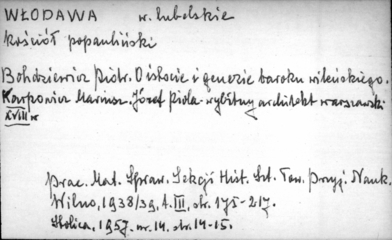 WŁODAWA w. lubelskie
kościół popauliński
Bohdziewicz Piotr. O istocie i genezie baroku wileńskiego.
Karpowicz Mariusz. Józef Piola - wybitny architekt warszawski
XVIII w
Prac. Mat. Spraw. Sekcji Hist. Szt. Tow. Przyj. Nauk.
Wilno, 1938/39, t. III, str. 175-217.
Stolica, 1957. nr. 14. str. 14-15.